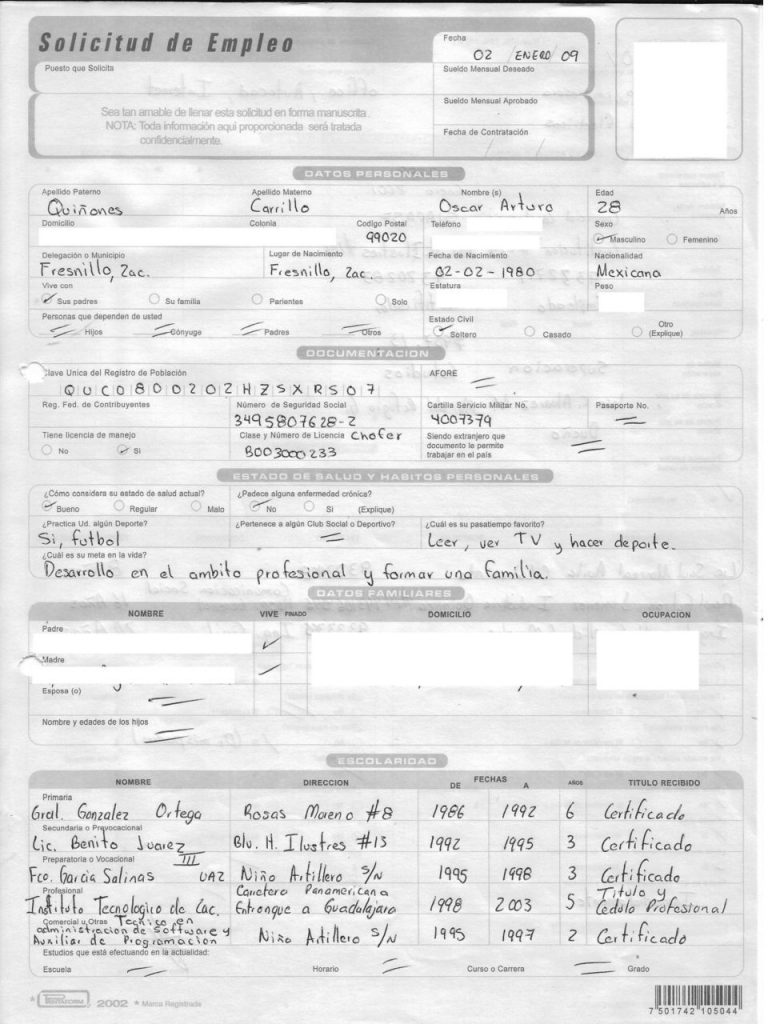 Solicitud de Empleo
Fecha
02 / ENERO / 09
Puesto que Solicita
Sueldo Mensual Deseado
Sea tan amable de llenar esta solicitud en forma manuscrita
NOTA: Toda información aqui proporcionada será tratada
confidencialmente.
Sueldo Mensual Aprobado
Fecha de Contratación
DATOS PERSONALES
Apellido Paterno Apellido Materno Nombre (s) Edad
Quiñones Carrillo Oscar Arturo 28 Años
Domicilio Colonia Codigo Postal Teléfono Sexo
99020 Masculino Femenino
Delegación o Municipio Lugar de Nacimiento Fecha de Nacimiento Nacionalidad
Fresnillo, Zac. Fresnillo, Zac. 02-02-1980 Mexicana
Vive con Estatura Peso
Sus padres Su familia Parientes Solo
Personas que dependen de usted Estado Civil
Hijos Cónyuge Padres Otros Soltero Casado Otro (Explique)
DOCUMENTACION
Clave Unica del Registro de Población AFORE
QUCO800202HZSXRS07
Reg. Fed. de Contribuyentes Número de Seguridad Social Cartilla Servicio Militar No. Pasaporte No.
3495807628-2 4007379
Tiene licencia de manejo Clase y Número de Licencia Chofer Siendo extranjero que
documento le permite
trabajar en el país
No Si B003000233
ESTADO DE SALUD Y HABITOS PERSONALES
¿Cómo considera su estado de salud actual? ¿Padece alguna enfermedad crónica?
Bueno Regular Malo No Si (Explique)
¿Practica Ud. algún Deporte? ¿Pertenece a algún Club Social o Deportivo? ¿Cuál es su pasatiempo favorito?
Si, futbol Leer, ver TV y hacer deporte.
¿Cuál es su meta en la vida?
Desarrollo en el ambito profesional y formar una familia.
DATOS FAMILIARES
NOMBRE VIVE FINADO DOMICILIO OCUPACION
Padre
Madre
Esposa (o)
Nombre y edades de los hijos
ESCOLARIDAD
NOMBRE DIRECCION FECHAS DE A AÑOS TITULO RECIBIDO
Primaria
Gral. Gonzalez Ortega Rosas Moreno #8 1986 1992 6 Certificado
Secundaria o Prevocacional
Lic. Benito Juarez Blv. H. Ilustres #13 1992 1995 3 Certificado
Preparatoria o Vocacional
Fco. Garcia Salinas III UAZ Niño Artillero S/N 1995 1998 3 Certificado
Profesional
Instituto Tecnologico de Zac. Carretera Panamericana
Entronque a Guadalajara 1998 2003 5 Titulo y
Cedula Profesional
Comercial u Otras Tecnico en
administracion de Software y
Auxiliar de Programacion Niño Artillero S/N 1995 1997 2 Certificado
Estudios que está efectuando en la actualidad:
Escuela Horario Curso o Carrera Grado
2002 * Marca Registrada
7 501742 105044